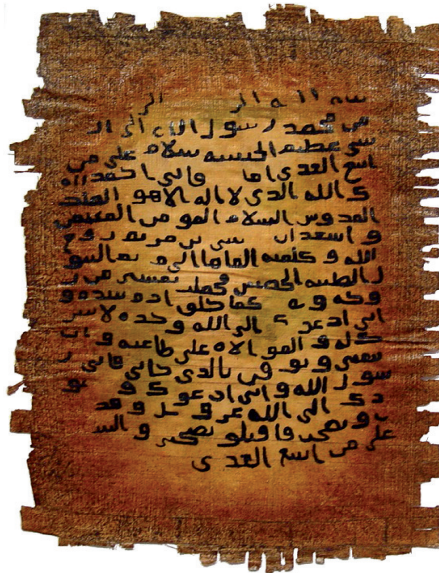 الله
من محمد رسول الله الى ال
عظيم الحبشة سلام على من
اتبع الهدى اما فاني احمد
الله الذي لا اله الا هو الملك
القدوس السلام المومن المهيمن
و اشهد ان بن مريم روح
الله و كلمته القاها الى مريم البتو
ل الطيبة الحصينة فحملت بعيسى من ر
وحه و كما خلق ادم بيده و
اني ادعوك الى الله وحده لا شر
يك له و الموالاة على طاعته و ان
تتبعني و توقن بالذي جاني فاني ر
سول الله و اني ادعوك و
دك الى الله عز و جل و قد
و نصحت فاقبلو نصيحتي و السلا
على من اتبع الهدى